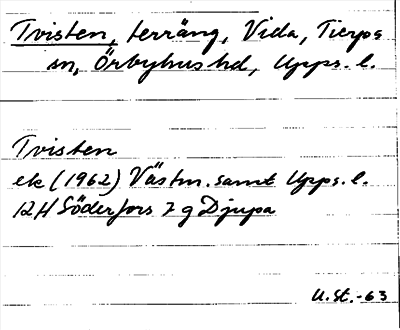 Tvisten, terräng, Vida, Tierps
sn, Örbyhus hd, Upps. l.
Tvisten
ek (1962) Västm. samt Upps. l.
12H Söderfors 7 g Djupa
U.St.-63